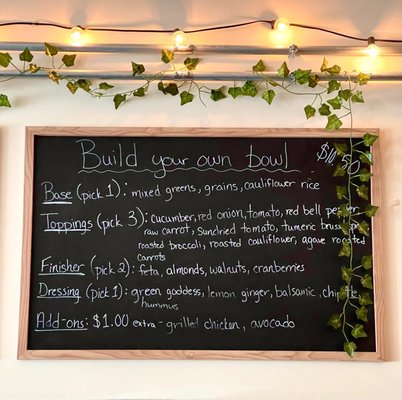 Build your own bowl $10.50
Base (pick 1): mixed greens, grains, cauliflower rice
Toppings (pick 3): cucumber, red onion, tomato, red bell
raw carrot, sundried tomato, tumeric
roasted broccoli, roasted cauliflower, agave roasted
carrots
Finisher (pick 2): feta, almonds, walnuts, cranberries
Dressing (pick 1): green goddess, lemon ginger, balsamic,
hummus
Add-ons: $1.00 extra - grilled chicken, avocado